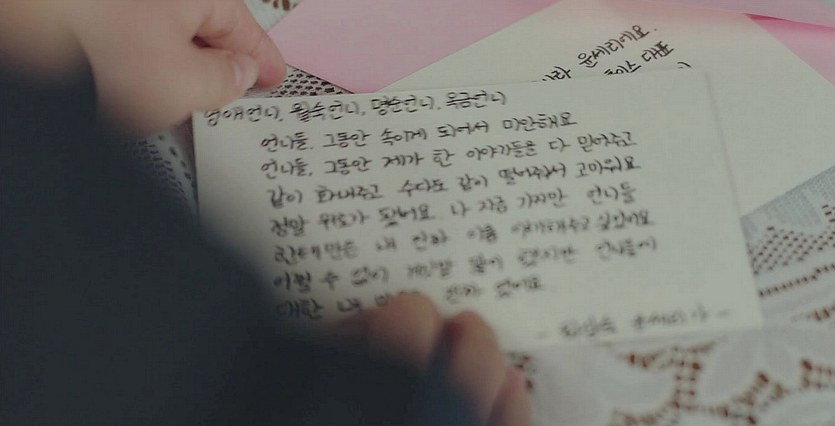 영애언니, 월숙언니, 명순언니, 옥금언니
언니들, 그동안 속이게 되어서 미안해요
언니들, 그동안 제가 한 이야기들을 다 믿어주고
같이 화내주고 수다도 같이 떨어줘서 고마워요
정말 위로가 됐어요. 나 지금 가지만 언니들
내 진짜 이름 얘기해주고 싶었어요
어쩔 수 없이 거짓말 많이 했지만 언니들에
대한 내 진짜 였어요
윤세리예요.
대표